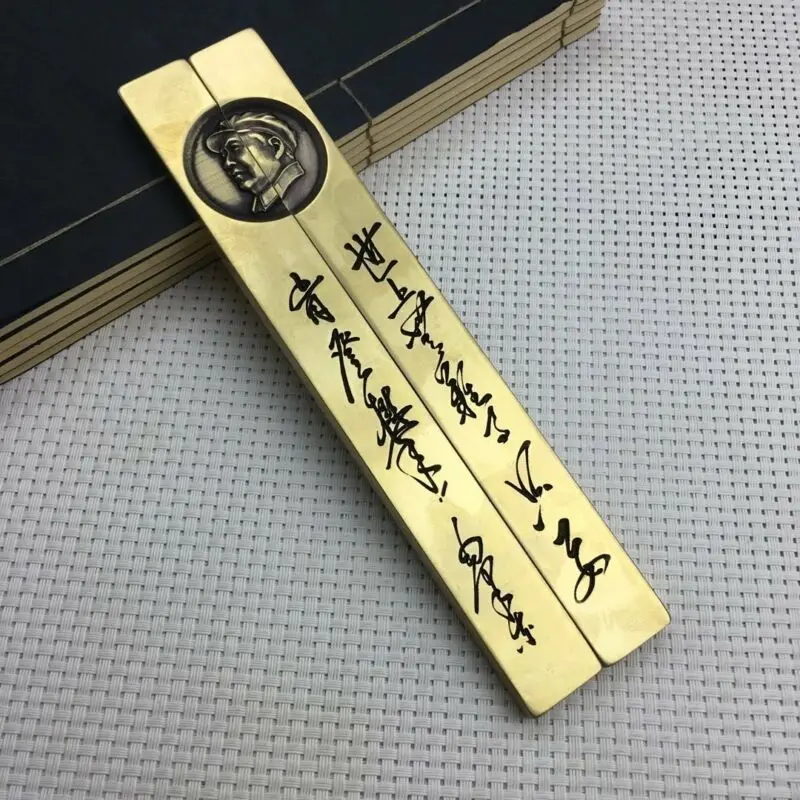 世上无难事只要
肯登攀 毛泽东